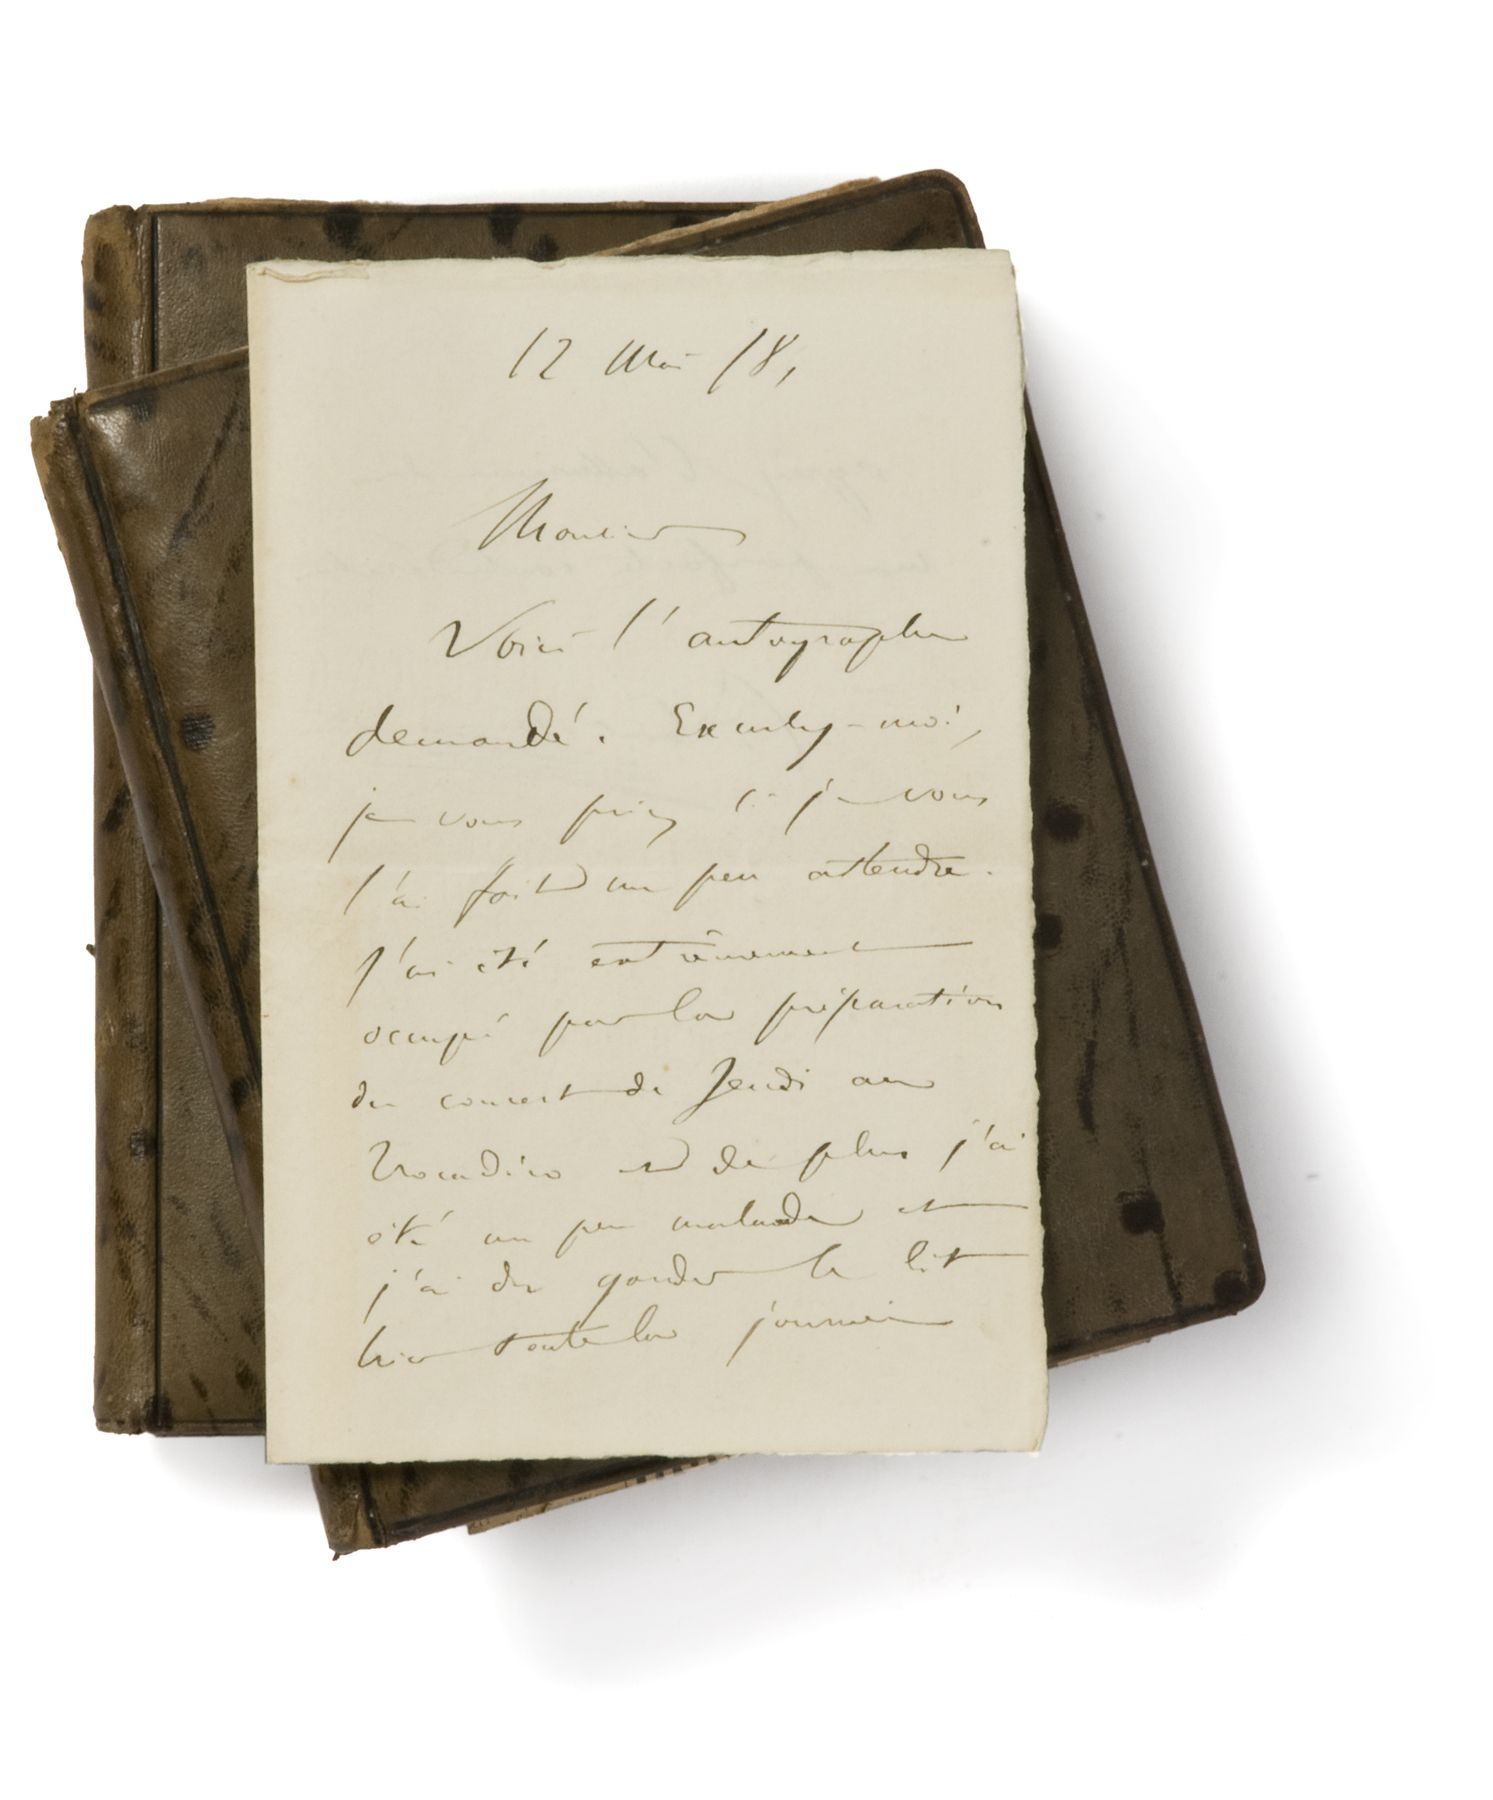 12 Mai 18,
Monsieur
Voici l'autographe
demandé. Excusez-moi,
je vous prie, si je vous
l'ai fait un peu attendre.
J'ai été extrêmement
occupé par la préparation
du concert de Jeudi au
Trocadéro et de plus j'ai
été un peu malade et
j'ai du garder le lit
hier toute la journée